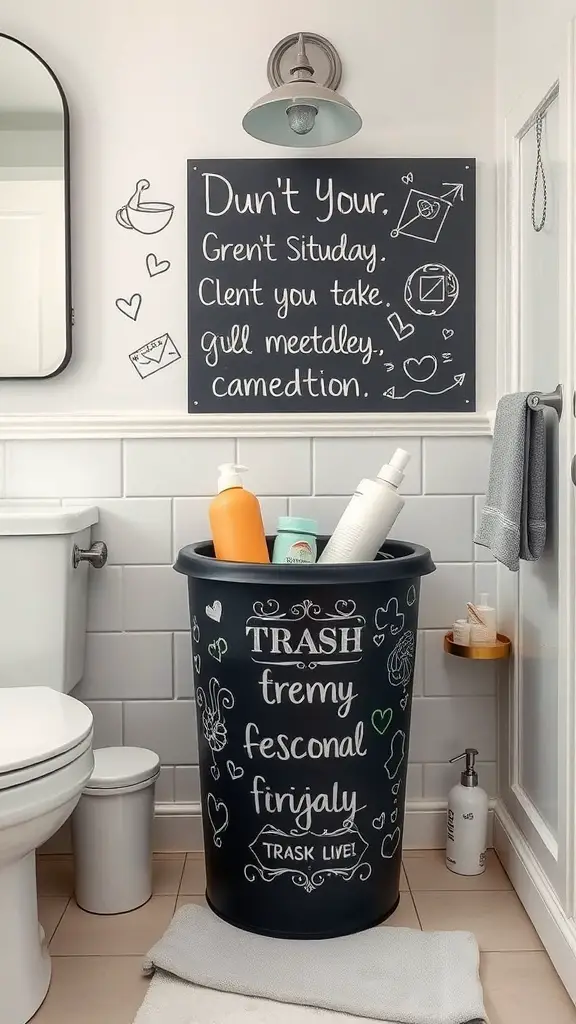 Dun't Your.
Gren't Situday.
Clent you take.
gull meetdley.,
camedtion.
TRASH
tremy
fesconal
firijaly
TRASK LIVE!